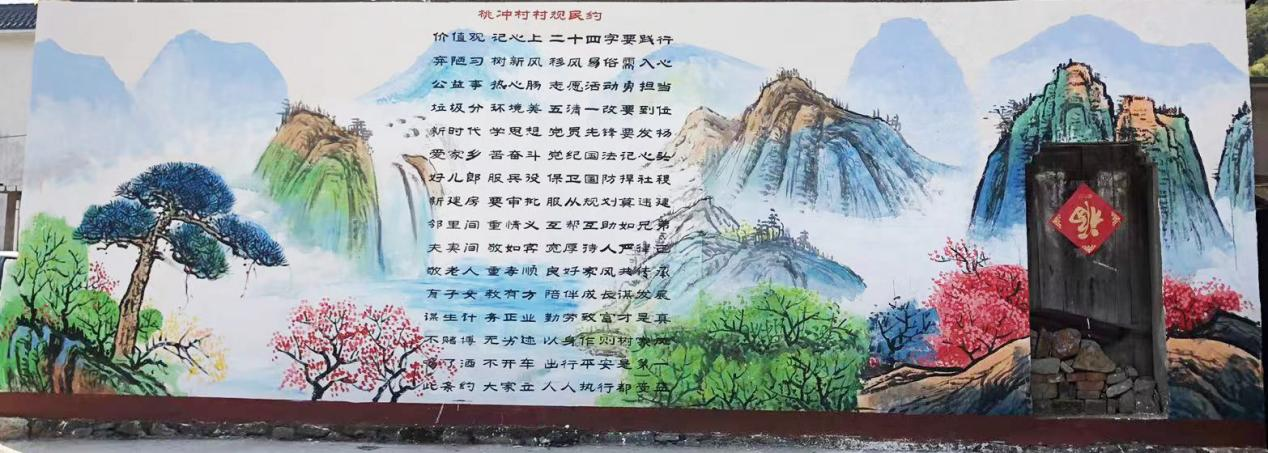 桃冲村村规民约
价值观 记心上 二十四字要践行
弃陋习 树新风 移风易俗需入心
公益事 热心肠 志愿活动勇担当
垃圾分 环境美 五清一改要到位
新时代 学思想 党员先锋要发扬
爱家乡 苦奋斗 党纪国法记心头
好儿郎 服兵役 保卫国防捍社稷
新建房 要审批 服从规划莫违建
邻里间 重情义 互帮互助如兄弟
夫妻间 敬如宾 宽厚待人严律己
敬老人 重孝顺 良好家风共传承
育子女 教有方 陪伴成长谋发展
谋生计 务正业 勤劳致富才是真
不赌博 无劣迹 以身作则树家风
喝了酒 不开车 出行平安是第一
此条约 大家立 人人执行都受益
福